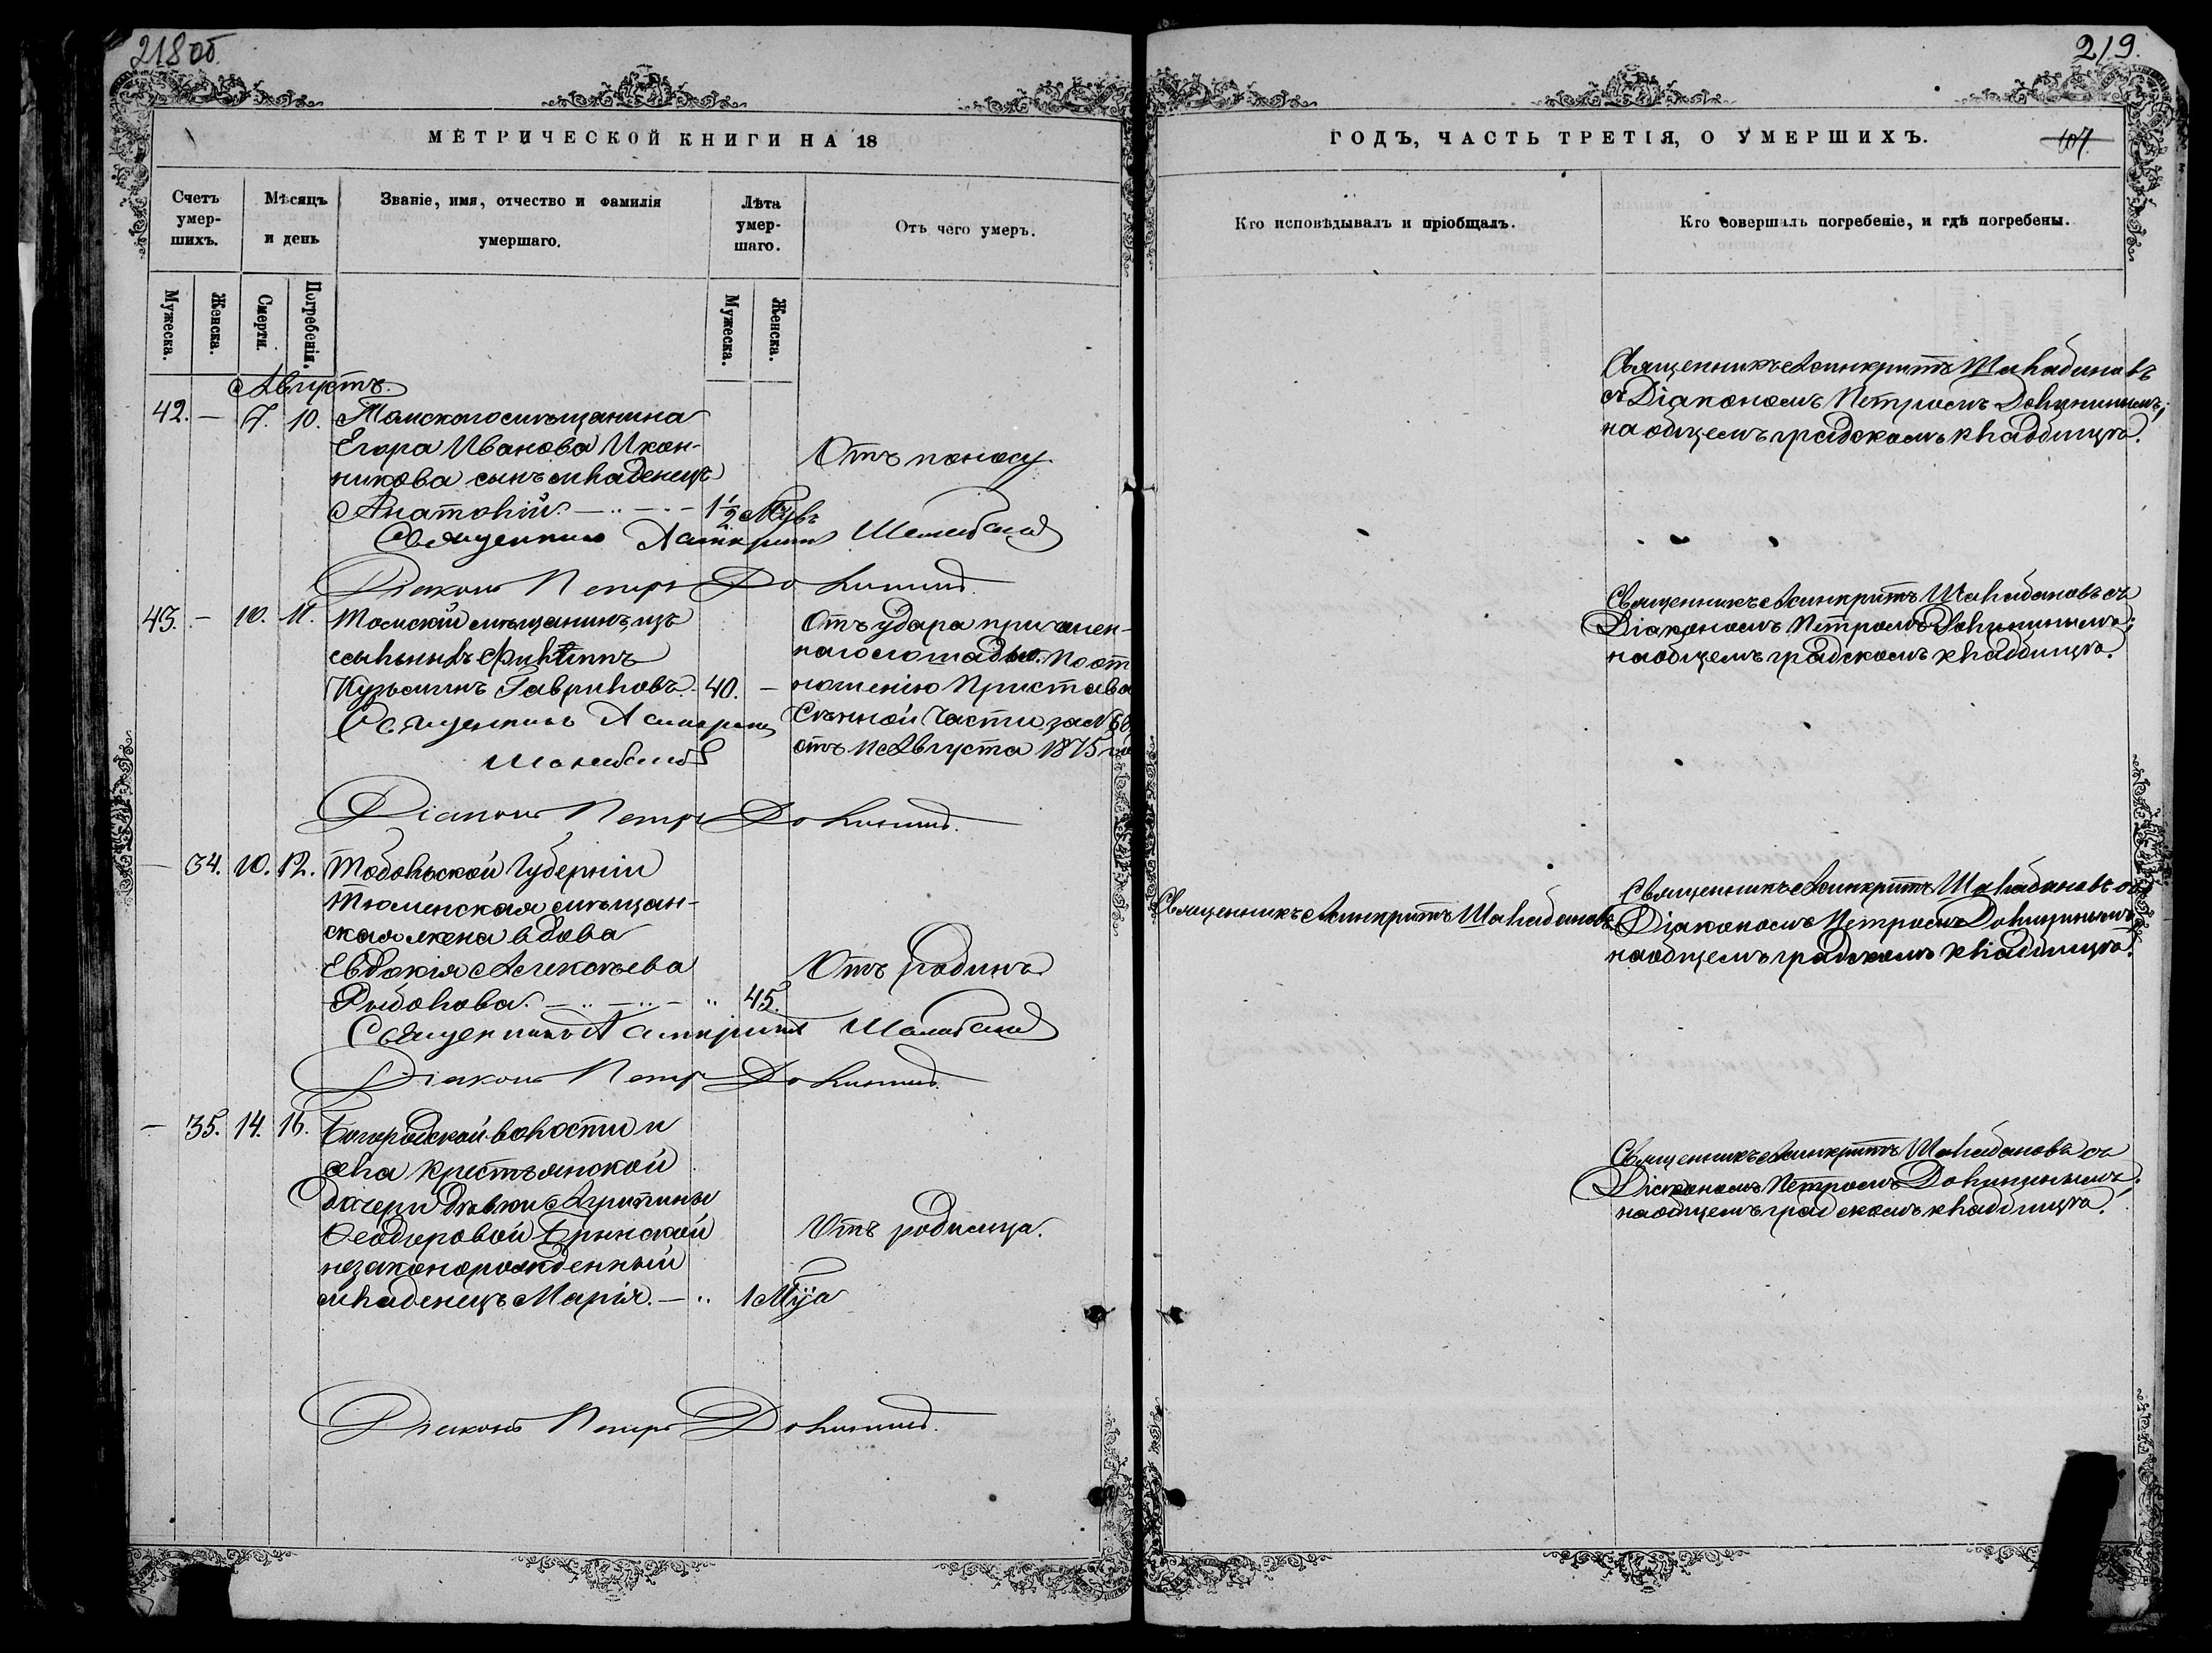 218 об.
МЕТРИЧЕСКОЙ КНИГИ НА 18
Счетъ умер-шихъ.
Мѣсяцъ и день
Званіе, имя, отчество и фамилія умершаго.
Лѣта умер-шаго.
Отъ чего умеръ.
Мужеска.
Женска.
Смерти.
Погребенія.
Мужеска.
Женска.
Августъ.
42. — 7. 10. Томскаго мѣщанина
Егора Иванова Икон-
никова сынъ младенецъ
Отъ поносу
Анатолій. — 1 1/2 М-въ
Священникъ Асинкритъ Шалабановъ
Діаконъ Петръ Долинин
43. — 10. 11. Томскій мѣщанинъ, изъ
ссыльныхъ Филиппъ
Кузьминъ Гавриловъ. 40. —
Отъ удара причинен-
наго лошадью. По от
ношенію Пристава
Сѣнной Части за №
отъ 11 Августа 1875 го
Священникъ Асинкритъ
Шалабановъ
Діаконъ Петръ Долинин
— 34. 10. 12. Тобольской Губерніи
Тюменская мѣщан-
ская жена вдова
Евдокія Алексѣева
Отъ родинъ
45.
Священникъ Асинкритъ Шалабановъ
Діаконъ Петръ Долинин
— 35. 14. 16. Богородской волости и
села крестьянской
дочери дѣвки
Ѳеодоровой Брынской
незаконорожденный
младенецъ Марія. — 1 М-ца
Отъ родимца.
Діаконъ Петръ Долинин
219.
ГОДЪ, ЧАСТЬ ТРЕТІЯ, О УМЕРШИХЪ.
107.
Кто исповѣдывалъ и пріобщалъ.
Кто совершалъ погребеніе, и гдѣ погребены.
Священникъ Асинкритъ Шалабановъ
съ Діакономъ Петромъ Долининымъ;
на общемъ градскомъ кладбищѣ.
Священникъ Асинкритъ Шалабановъ съ
Діакономъ Петромъ Долининымъ;
на общемъ градскомъ кладбищѣ.
Священникъ Асинкритъ Шалабановъ
Священникъ Асинкритъ Шалабановъ съ
Діакономъ Петромъ Долининымъ
на общемъ градскомъ кладбищѣ.
Священникъ Асинкритъ Шалабановъ съ
Діакономъ Петромъ Долининымъ;
на общемъ градскомъ кладбищѣ.